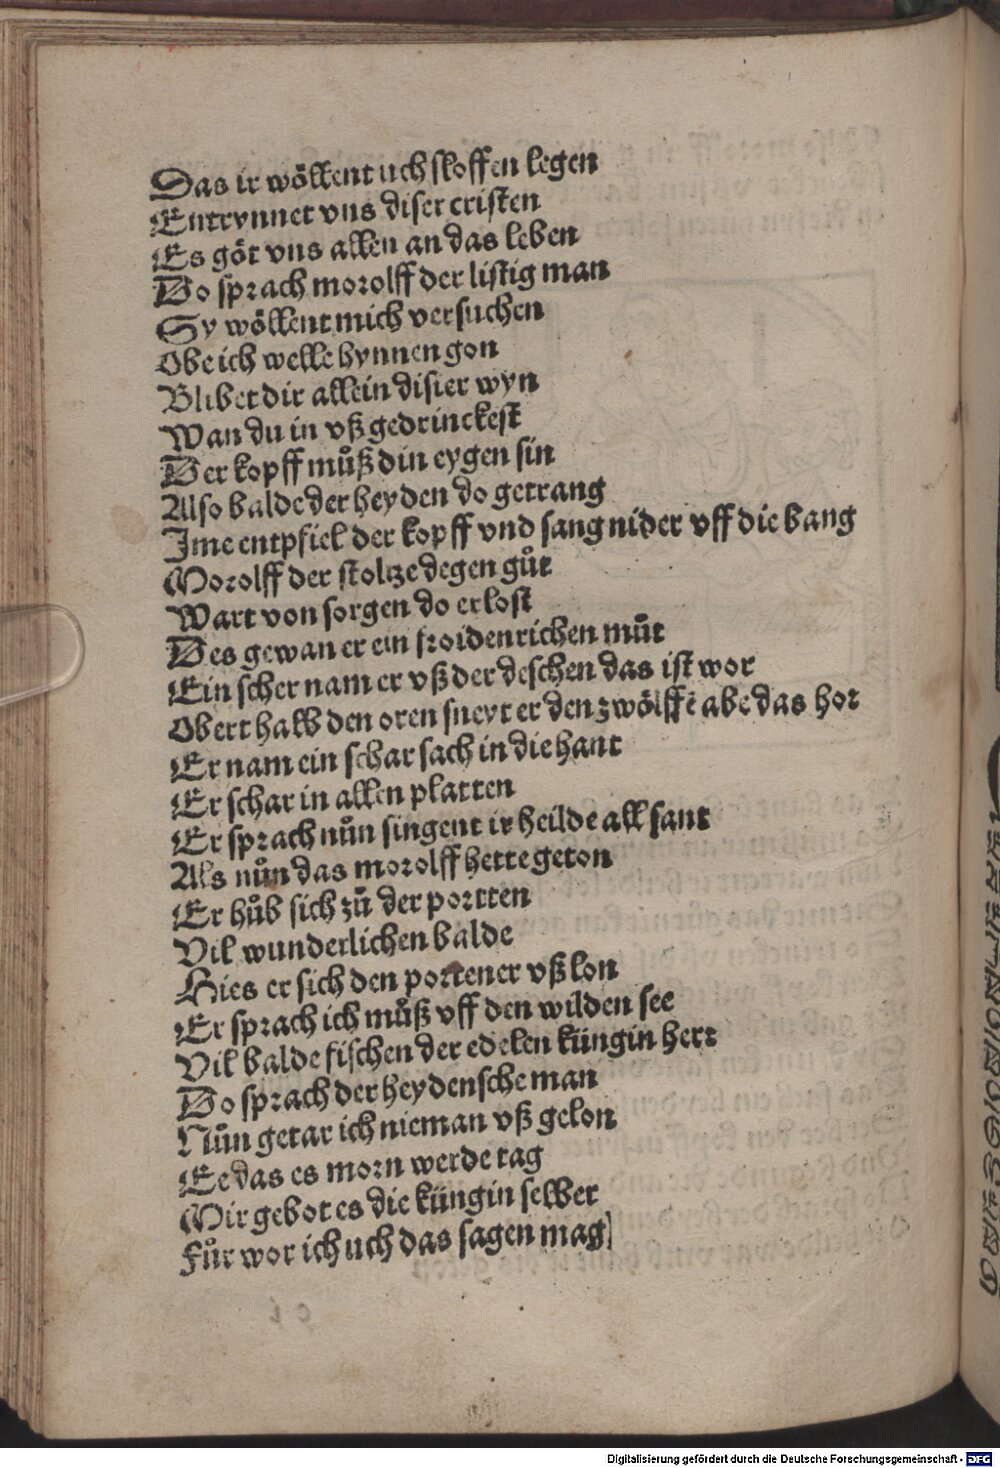 Das ir wöllent uch sloffen legen
Entrynnet vns diser cristen
Es göt vns allen an das leben
Do sprach morolff der listig man
Sy wöllent mich versuchen
Obe ich welle hynnen gon
Blibet dir allein disier wyn
Wan du in vß gedrinckest
Der kopff můß din eygen sin
Also balde der heyden do getrang
Ime entpfiel der kopff vnd sang nider vff die bang
Morolff der stoltze degen gůt
Wart von sorgen do erlost
Des gewan er ein froidenrichen můt
Ein scher nam er vß der deschen das ist wor
Oberthalb den oren sneyt er den zwölffē abe das hor
Er nam ein scharsach in die hant
Er schar in allen platten
Er sprach nůn singent ir heilde all sant
Als nůn das morolff hette geton
Er hůb sich zů der portten
Vil wunderlichen balde
Hies er sich den portener vß lon
Er sprach ich můß vff den wilden see
Vil balde fischen der edelen küngin herr
Do sprach der heydensche man
Nůn getar ich nieman vß gelon
Ee das es morn werde tag
Mir gebot es die küngin selber
Für wor ich uch das sagen mag
Digitalisierung gefördert durch die Deutsche Forschungsgemeinschaft - DFG